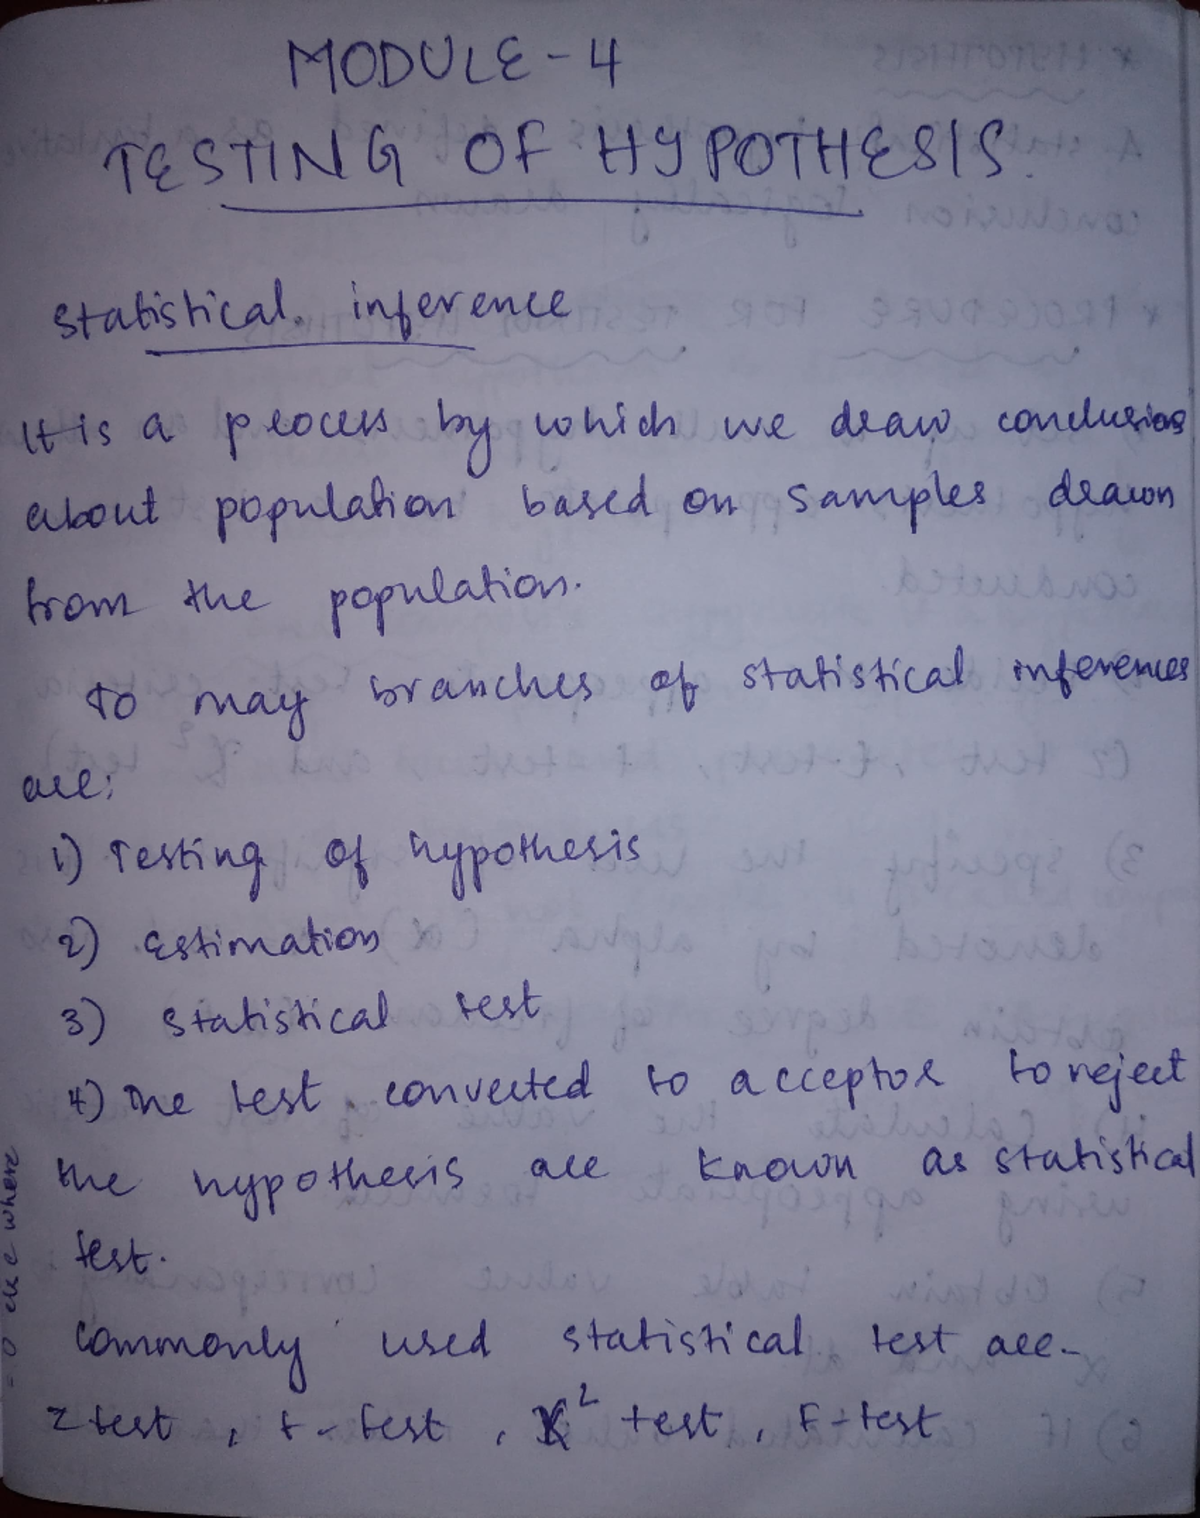 MODULE - 4
TESTING OF HYPOTHESIS.
Statistical. inference
It is a process by which we draw conclusions
about population based on samples drawn
from the population.
To may branches of statistical inferences
are:
1) Testing of hypothesis
2) Estimation
3) Statistical test
4) The test converted to acceptor to reject
the hypothesis are known as statistical
test.
commonly used statistical test are-
z test, t-test, X² test, F-test